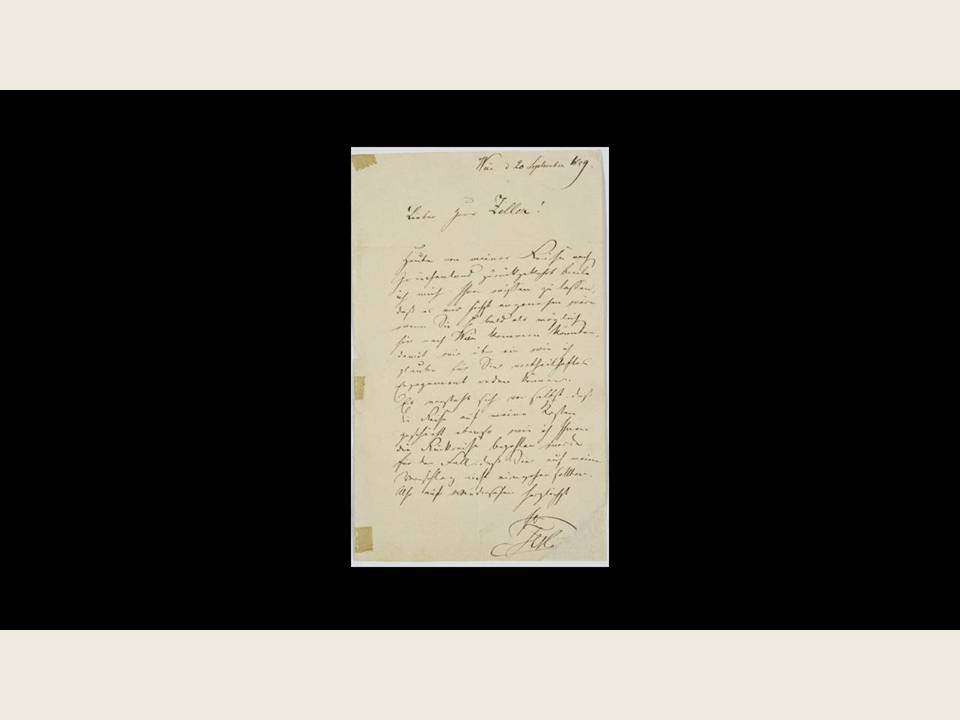 Wien d 20 September 1859.
Lieber Herr Zeller!
Heute von meiner Reise nach
Griechenland zurückgekehrt beeile
ich mich Ihnen wissen zu lassen,
daß es mir höchst angenehm wäre
wenn Sie so bald als möglich
hier nach Wien kommen könnten,
damit wir über ein wie ich
glaube für Sie vortheilhaftes
Engagement reden können.
Es versteht sich von selbst, daß
die Reise auf meine Kosten
geschieht ebenso wie ich Ihnen
die Rückreise bezahlen würde
für den Fall, daß Sie auf meinen
Vorschlag nicht eingehen sollten.
Also auf Wiedersehen herzlichst
Ihr